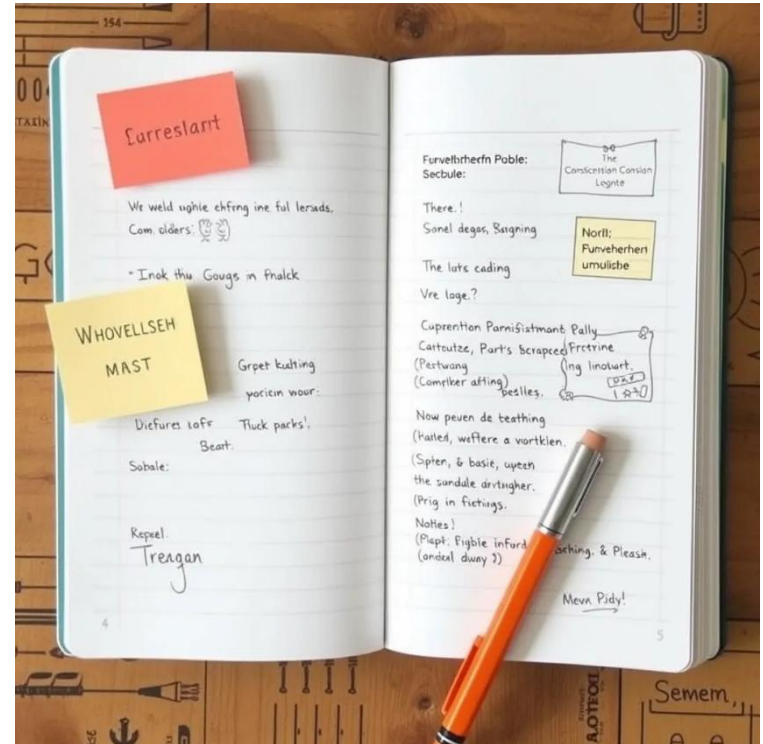 154
Eurreslarit
We weld ughie chfring ine ful lersds.
Com. olders:
- Inok thu Gougs in fhalck
WHOVELLSEH
MAST
Grpet kulting
yoricin wour:
Diefures iofr Tluck parks!,
Beart.
Sobale:
Repeel.
Trengan
4
Funvelbrherfn Pable:
Secbule:
The
Legnte
There.!
Sonel degas, Bergning
Norll;
Funveherherı
umuliche
The lats cading
Vre loge.?
Cuprention Parnifistmant Pally
Cattoutze, Part's Scrapced Frctrine
(Pertwang
(ing linoturt.
(Comflker afting)
peslles.
Now peven de teathing
(Hailed, weftere a vortklen.
(Spten, & basie, upeen
the sundale drvtngher.
(Prig in fictings.
Nottes!
(Plapt: Figble infurd ching. & Pleash.
(ondeal dwny ?))
Mevn Pidy!
5
Semem,